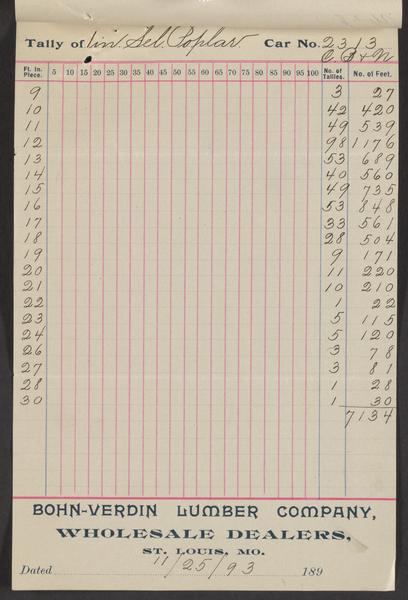 Tally of 1 in. Sel. Poplar Car No. 2313
C. B & N
Ft. In. Piece. 5 10 15 20 25 30 35 40 45 50 55 60 65 70 75 80 85 90 95 100 No. of Tallies. No. of Feet.
9 3 27
10 42 420
11 49 539
12 98 1176
13 53 689
14 40 560
15 49 735
16 53 848
17 33 561
18 28 504
19 9 171
20 11 220
21 10 210
22 1 22
23 5 115
24 5 120
26 3 78
27 3 81
28 1 28
30 1 30
7134
BOHN-VERDIN LUMBER COMPANY,
WHOLESALE DEALERS,
ST. LOUIS, MO.
Dated 11/25/93 189